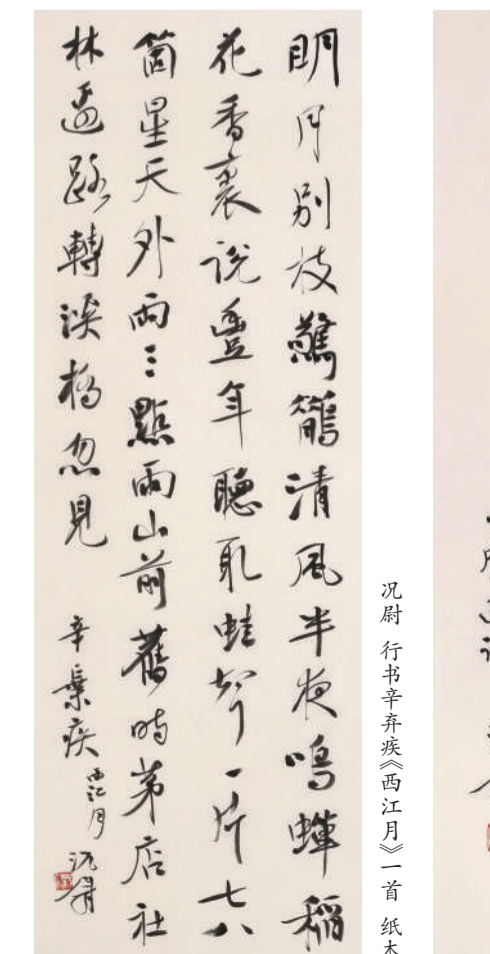 明月別枝驚鵲清風半夜鳴蟬稻
花香裏説豐年聽取蛙聲一片七八
箇星天外兩三點雨山前舊時茅店社
林邊路轉溪橋忽見 辛棄疾 西江月 况尉
况尉 行书辛弃疾《西江月》一首 纸